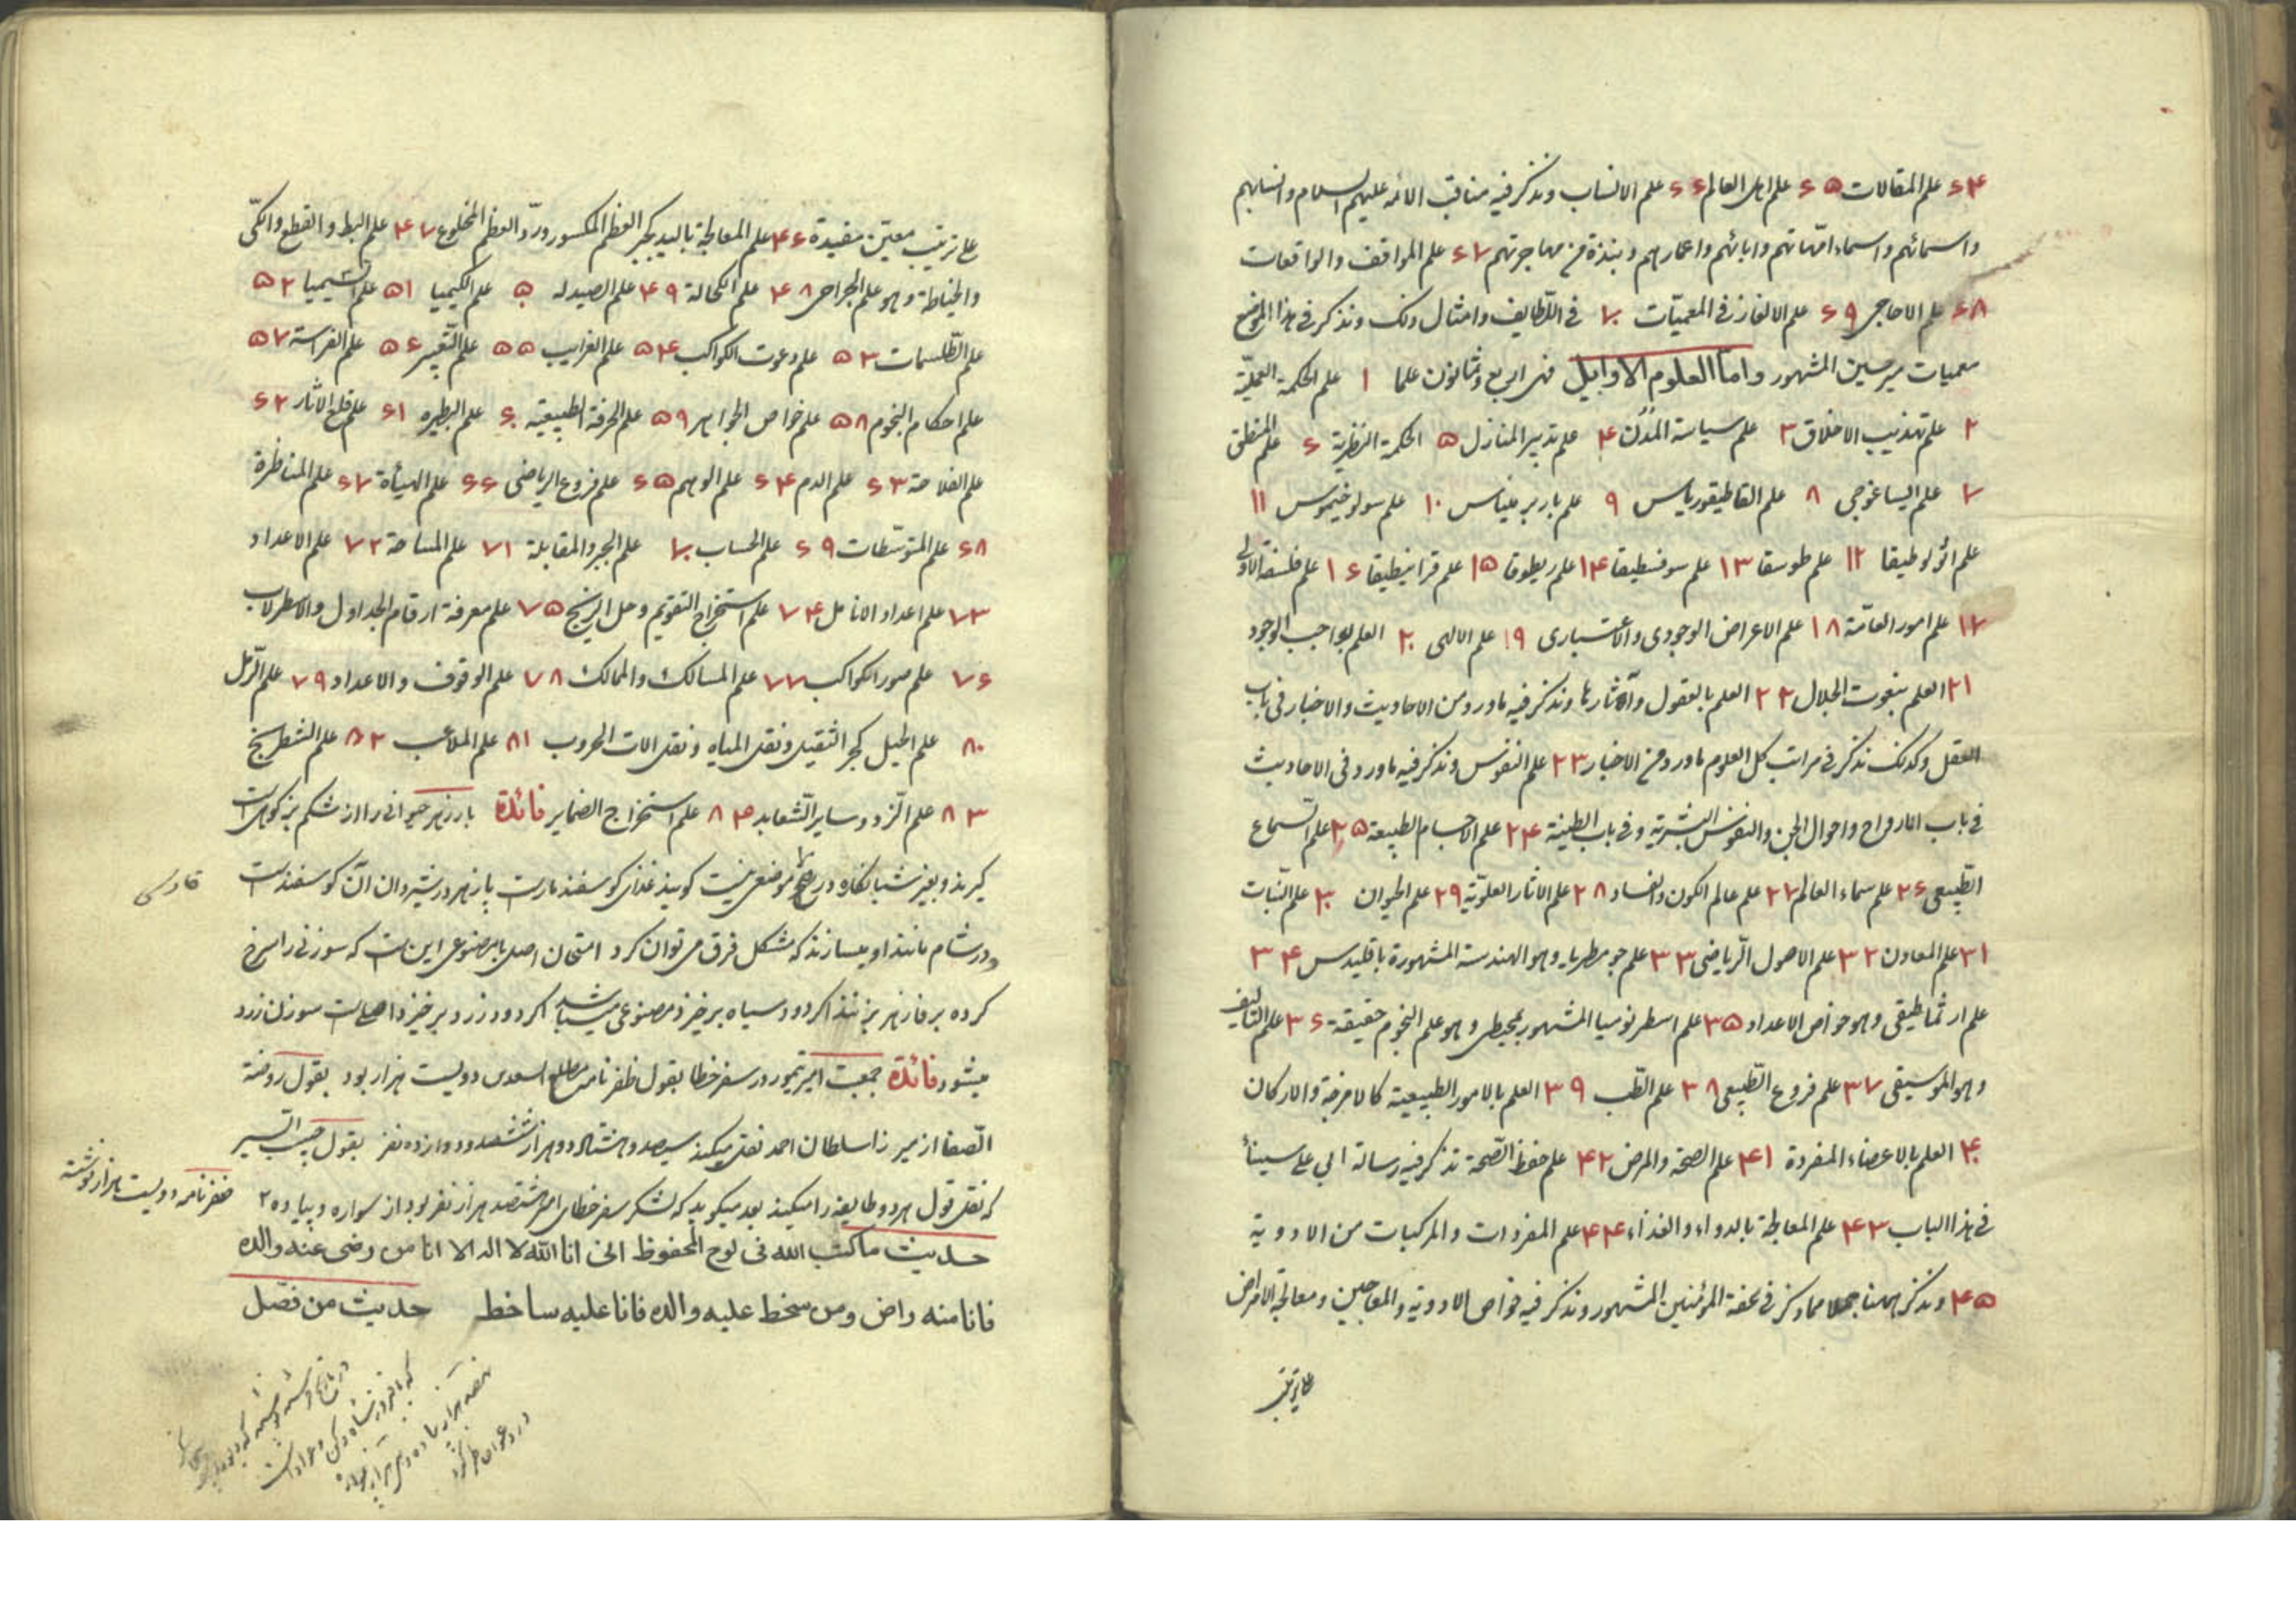 ۶۴ علم المقالات ۶۵ علم اهل العالم ۶۶ علم الانساب ونذکر فیه مناقب الائمه علیهم السلام وانسابهم
واسمائهم واسماء امّهاتهم وابائهم واعمارهم ونبذة من مهاجرتهم ۶۷ علم المواقف والواقعات
۶۸ علم الاحاجی ۶۹ علم الالغاز فی المعمیّات ۷۰ فی اللّطایف وامثال ذلک ونذکر فی هذا الموضع
معمیات میر حسین المشهور وامّا العلوم الاوایل فهی اربع وثمانون علما ۱ علم الحکمة العملیّة
۲ علم تهذیب الاخلاق ۳ علم سیاسة المدُن ۴ علم تدبیر المنازل ۵ الحکمة النظریة ۶ علم المنطق
۷ علم ایساغوجی ۸ علم القاطیقوریاس ۹ علم باربرمیناس ۱۰ علم سولوخیموس ۱۱
علم انولوطیقا ۱۲ علم طوبیقا ۱۳ علم سوفسطیقا ۱۴ علم ریطوقا ۱۵ علم قرانیطیقا ۱۶ علم فلسفة الاولی
۱۷ علم امور العامّة ۱۸ علم الاعراض الوجودی والاعتباری ۱۹ علم الالهی ۲۰ العلم بواجب الوجود
۲۱ العلم بنعوت الجلال ۲۲ العلم بالعقول وآثارها ونذکر فیه ما ورد من الاحادیث والاخبار فی باب
العقل وکذلک نذکر فی مراتب کل العلوم ما ورد من الاخبار ۲۳ علم النفوس ونذکر فیه ما ورد فی الاحادیث
فی باب الارواح واحوال الجن والنفوس البشریة وفی باب الطینة ۲۴ علم الاجسام الطبیعة ۲۵ علم السّماع
الطّبیعی ۲۶ علم سماء العالم ۲۷ علم عالم الکون والفساد ۲۸ علم الاثار العلویّة ۲۹ علم الحیوان ۳۰ علم النّبات
۳۱ علم المعادن ۳۲ علم الاصول الرّیاضی ۳۳ علم جومطریا وهو الهندسة المشهورة باقلیدس ۳۴
علم ارثماطیقی وهو خواص الاعداد ۳۵ علم اسطرنومیا المشهور بمجیطی وهو علم النجوم حقیقة ۳۶ علم التالیف
وهو الموسیقی ۳۷ علم فروع الطّبیعی ۳۸ علم الطّب ۳۹ العلم بالامور الطبیعیة کالامزجة والارکان
۴۰ العلم بالاعضاء المفردة ۴۱ علم الصحّة والمرض ۴۲ علم حفظ الصّحة نذکر فیه رسالة ابی علی سینا
فی هذا الباب ۴۳ علم المعالجة بالدواء والغذاء ۴۴ علم المفردات والمرکبات من الادویة
۴۵ ونذکر ههنا جملا مما ذکر فی تحفة المؤمنین المشهور ونذکر فیه خواص الادویة والمعاجین ومعالجة الامراض
علی ترتیب
علی ترتیب معیّن مفیدة ۴۶ علم المعالجة بالید کجبر العظم المکسور وردّ العظم المخلوع ۴۷ علم البط والقطع والکیّ
والخیاطة وهو علم الجراحی ۴۸ علم الکحالة ۴۹ علم الصیدله ۵۰ علم الکیمیا ۵۱ علم السّیمیا ۵۲
علم الطّلسمات ۵۳ علم دعوت الکواکب ۵۴ علم الغرایب ۵۵ علم التّعبیر ۵۶ علم الفراسة ۵۷
علم احکام النجوم ۵۸ علم خواص الجواهر ۵۹ علم الحرفة الطبیعیّة ۶۰ علم البیطره ۶۱ علم قلع الاثار ۶۲
علم الفلاحة ۶۳ علم الدم ۶۴ علم الوهم ۶۵ علم فروع الریاضی ۶۶ علم الهیأة ۶۷ علم المناظرة
۶۸ علم المتوسّطات ۶۹ علم الحساب ۷۰ علم الجبر والمقابلة ۷۱ علم المساحة ۷۲ علم الاعداد
۷۳ علم اعداد الانامل ۷۴ علم استخراج التقویم وحل الزیج ۷۵ علم معرفة ارقام الجداول والاسطرلاب
۷۶ علم صور الکواکب ۷۷ علم المسالک والممالک ۷۸ علم الوقوف والاعداد ۷۹ علم الرّمل
۸۰ علم الحیل کجر الثقیل ونقل المیاه ونقل الات الحروب ۸۱ علم الملاعب ۸۲ علم الشطرنج
۸۳ علم النّرد وسایر الشّعابد ۸۴ علم استخراج الضمایر فائدة پازهر حیوانی را از شکم بز کوهی
گیرند وبغیر شبانکاره در هیچ موضعی نیست کویند غذای کوسفند مارست پازهر در شیردان آن کوسفندست
ودر شام مانند او بسازند که مشکل فرق می توان کرد امتحان اصلی با مصنوعی اینست که سوزنی را سرخ
کرده بر فازهر بزنند اگر دود سیاه برخیزد مصنوعی میباشد اگر دود زرد برخیزد اصلیست سوزن زرد
میشود فائدة جمعیت امیر تیمور در سفر خطا بقول ظفر نامه مطلع السعدین دویست هزار بود بقول روضة
الصّفا از میرزا سلطان احمد نقل میکند سیصد وهشتاد ودو هزار ششصد ودوازده نفر بقول حبیب السیر
که نقل قول هر دو طایفه را میکند بعد میکوید که لشکر سفر خطای او هشتصد هزار نفر بود از سواره وپیاده ۲
حدیث ما کتب الله فی لوح المحفوظ انی انا الله لا اله الا انا من رضی عنه والده
فانا منه راض ومن سخط علیه والده فانا علیه ساخط حدیث من فضل
ظفر نامه دویست هزار نوشته